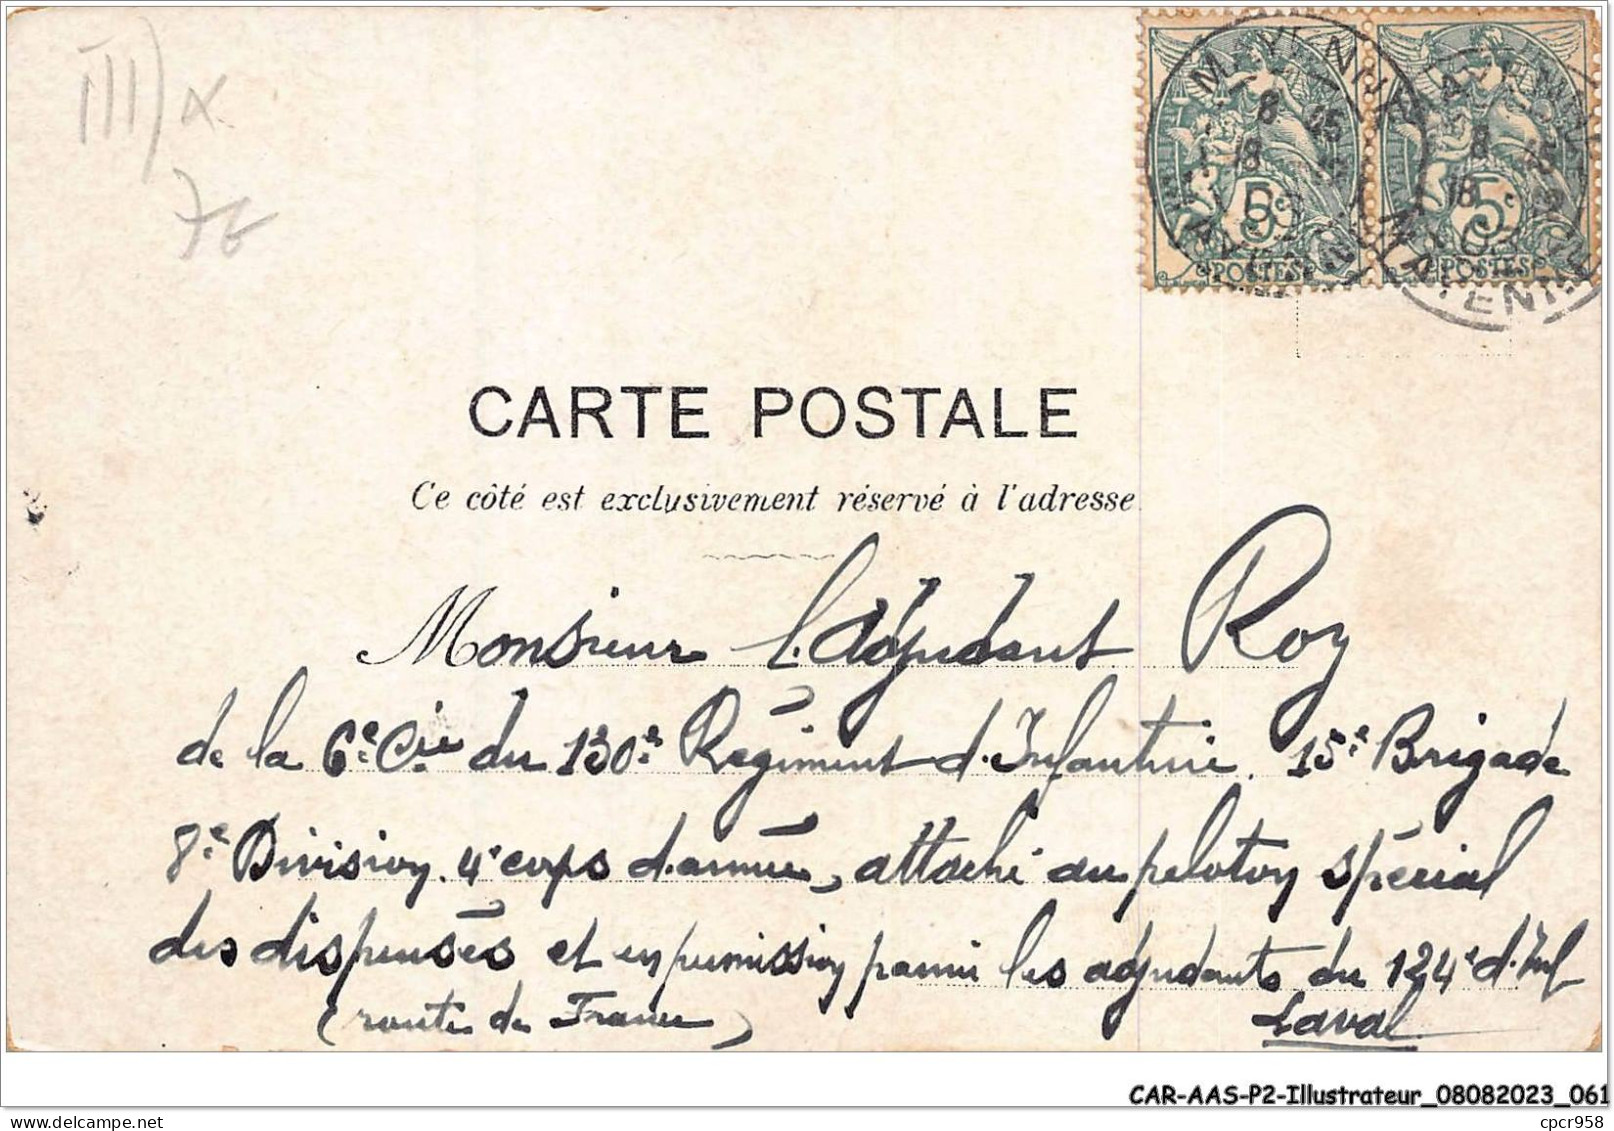 III) x
76
MAYENNE
8 15
18
MAYENNE
MAYENNE
8 15
18
03
MAYENNE
5c
POSTES
5c
POSTES
CARTE POSTALE
Ce côté est exclusivement réservé à l'adresse
Monsieur l'Adjudant Roy
de la 6e Cie du 130e Régiment d'Infanterie. 15e Brigade
8e Division. 4e corps d'armée, attaché au peloton spécial
des dispensés et en permission parmi les adjudants du 124e d'Inf
(route de France) Laval
CAR-AAS-P2-Illustrateur_08082023_061
cpcr958